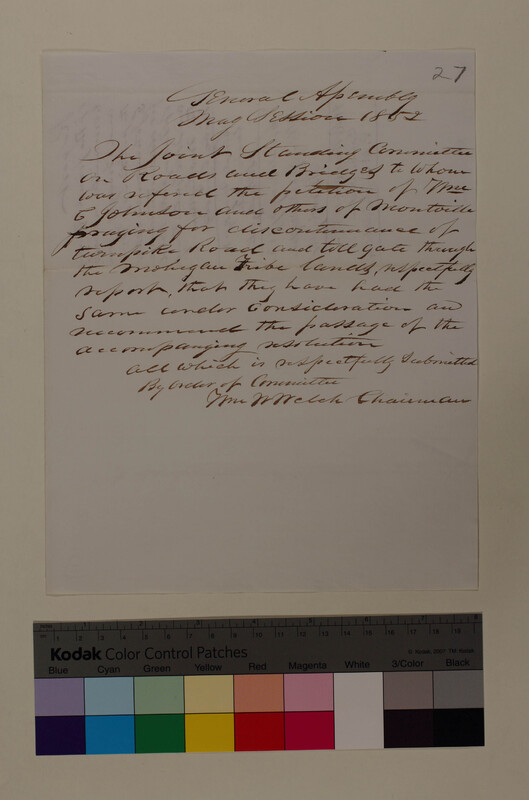 27
General Assembly
May Session 1852
The Joint Standing Committee
on Roads and Bridges to whom
was referred the petition of Wm
E Johnson and others of Montville
praying for discontinuance of
turnpike Road and toll gate through
the Mohegan Tribe lands, respectfully
report, that they have had the
same under Consideration and
recommend the passage of the
accompanying resolution
all which is respectfully Submitted
By order of Committee
Wm W Welch Chairman
Kodak Color Control Patches
Blue Cyan Green Yellow Red Magenta White 3/Color Black